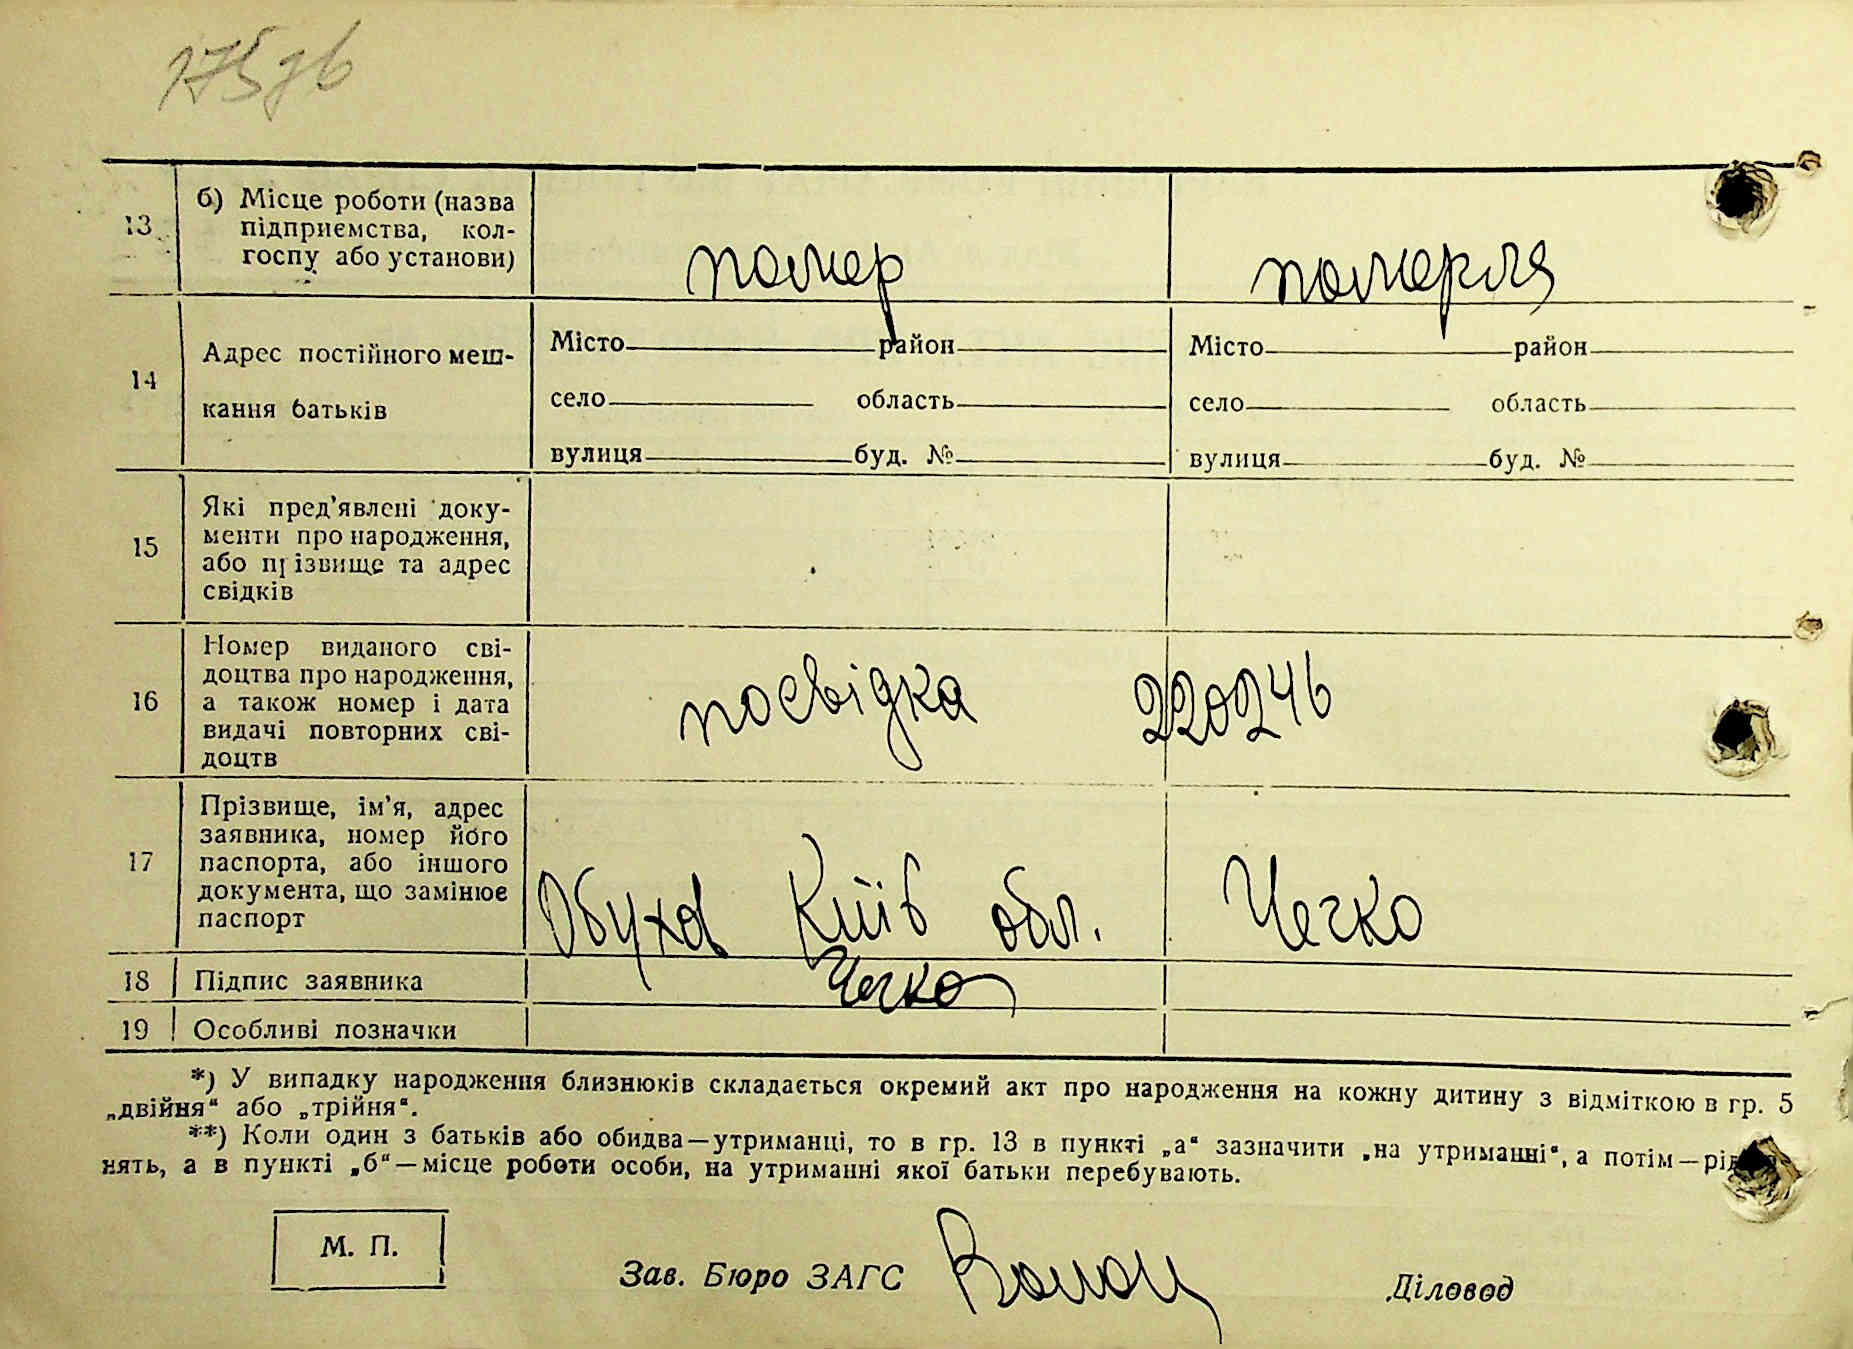 175зв
13 б) Місце роботи (назва
підприємства, кол-
госпу або установи)
помер
померла
14 Адрес постійного меш-
кання батьків
Місто район
село область
вулиця буд. №
Місто район
село область
вулиця буд. №
15 Які пред'явлені доку-
менти про народження,
або прізвище та адрес
свідків
16 Номер виданого сві-
доцтва про народження,
а також номер і дата
видачі повторних сві-
доцтв
посвідка 220246
17 Прізвище, ім'я, адрес
заявника, номер його
паспорта, або іншого
документа, що замінює
паспорт
Обухов Київ обл. Чечко
18 Підпис заявника
Чечко
19 Особливі позначки
*) У випадку народження близнюків складається окремий акт про народження на кожну дитину з відміткою в гр. 5
„двійня“ або „трійня“.
**) Коли один з батьків або обидва—утриманці, то в гр. 13 в пункті „а“ зазначити „на утриманні“, а потім—рід
нять, а в пункті „б“—місце роботи особи, на утриманні якої батьки перебувають.
М. П.
Зав. Бюро ЗАГС
Діловод